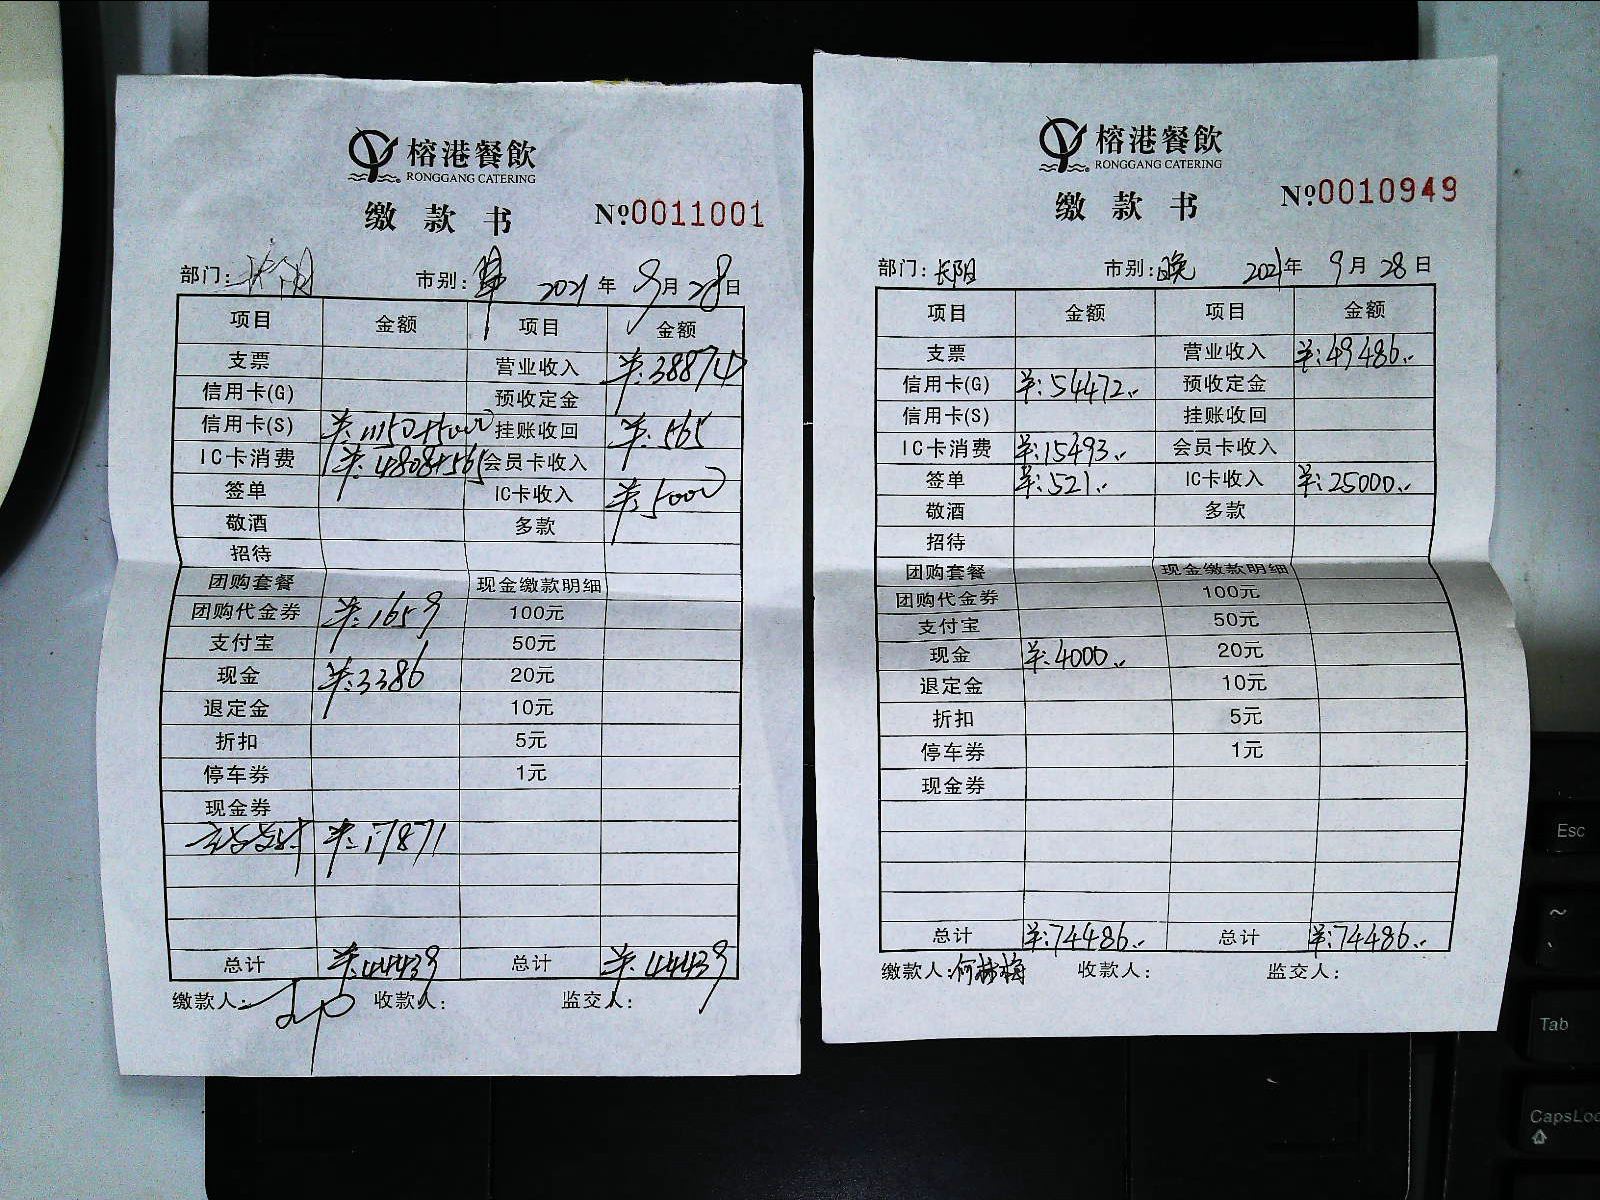 榕港餐飲
RONGGANG CATERING
缴款书
№0011001
部门: 市别: 2021年9月28日
项目 金额 项目 金额
支票 营业收入 ¥:38874
信用卡(G) 预收定金
信用卡(S) ¥:11150+5000 挂账收回 ¥:565
IC卡消费 ¥:4808+565 会员卡收入
签单 IC卡收入 ¥:5000
敬酒 多款
招待
团购套餐 现金缴款明细
团购代金券 ¥:1659 100元
支付宝 50元
现金 ¥:3386 20元
退定金 10元
折扣 5元
停车券 1元
现金券
¥:17871
总计 ¥:44439 总计 ¥:44439
缴款人: 收款人: 监交人:
榕港餐飲
RONGGANG CATERING
缴款书
№0010949
部门:长阳 市别:晚 2021年9月28日
项目 金额 项目 金额
支票 营业收入 ¥:49486..
信用卡(G) ¥:54472.. 预收定金
信用卡(S) 挂账收回
IC卡消费 ¥:15493.. 会员卡收入
签单 ¥:521.. IC卡收入 ¥:25000..
敬酒 多款
招待
团购套餐 现金缴款明细
团购代金券 100元
支付宝 50元
现金 ¥:4000.. 20元
退定金 10元
折扣 5元
停车券 1元
现金券
总计 ¥:74486.. 总计 ¥:74486..
缴款人: 收款人: 监交人:
Esc
~
Tab